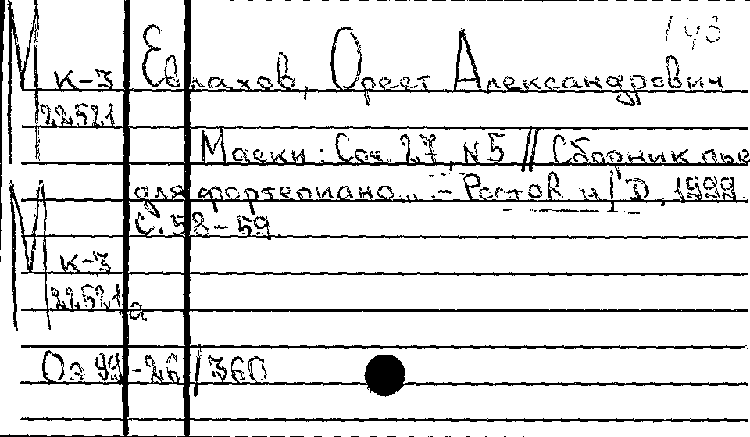 143
М к-3 Евлахов, Орест Александрович
22521
Маски: Соч. 27, N 5 // Сборник пье
для фортепиано... - Ростов н/Д, 1999.
С. 58-59.
М к-3
22521а
Оэ 99-26/360